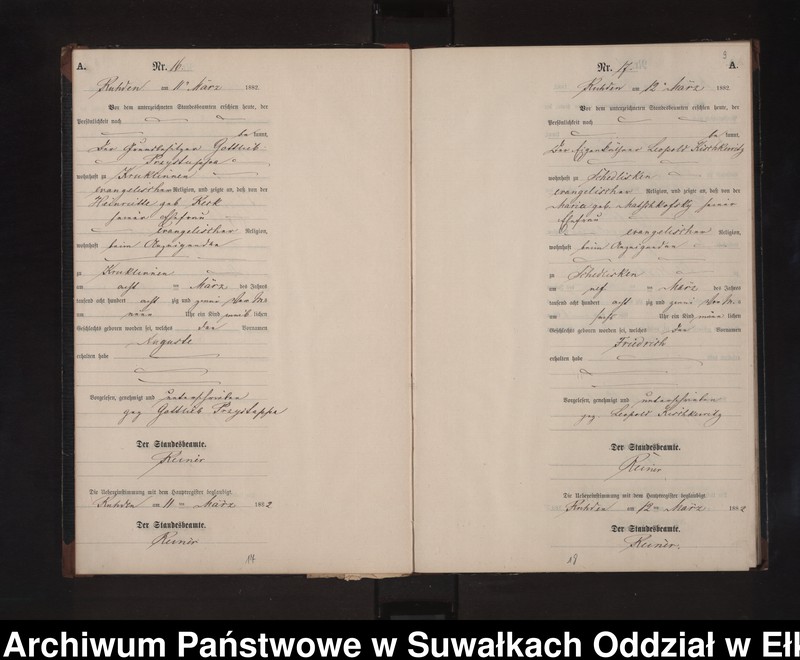 A. Nr. 16.
Ruhden am 11ten März 1882
Vor dem unterzeichneten Standesbeamten erschien heute, der
Persönlichkeit nach
be kannt,
der Grundbesitzer Gottlieb
Przystuppa
wohnhaft zu Kruklinnen
evangelischer Religion, und zeigte an, daß von der
Heinriette geb.
seiner Ehefrau
evangelischer Religion,
wohnhaft beim Anzeigenden
zu Kruklinnen
am acht ten März des Jahres
tausend acht hundert acht zig und zwei
um neun Uhr ein Kind weib lichen
Geschlechts geboren worden sei, welches den Vornamen
Auguste
erhalten habe
Vorgelesen, genehmigt und unterschrieben
gez. Gottlieb Przystuppa
Der Standesbeamte.
Die Uebereinstimmung mit dem Hauptregister beglaubigt
Ruhden am 11ten März 1882
Der Standesbeamte.
14
Nr. 17. A.
Ruhden am 12ten März 1882
Vor dem unterzeichneten Standesbeamten erschien heute, der
Persönlichkeit nach
be kannt,
der Eigenkäthner Leopold
wohnhaft zu Schedlisken
evangelischer Religion, und zeigte an, daß von der
Maria geb. seiner
Ehefrau
evangelischer Religion,
wohnhaft beim Anzeigenden
zu Schedlisken
am elf ten März des Jahres
tausend acht hundert acht zig und zwei
um sechs Uhr ein Kind männ lichen
Geschlechts geboren worden sei, welches den Vornamen
Friedrich
erhalten habe
Vorgelesen, genehmigt und unterschrieben
gez. Leopold
Der Standesbeamte.
Die Uebereinstimmung mit dem Hauptregister beglaubigt
Ruhden am 12ten März 1882
Der Standesbeamte.
Archiwum Państwowe w Suwałkach Oddział w Ełk